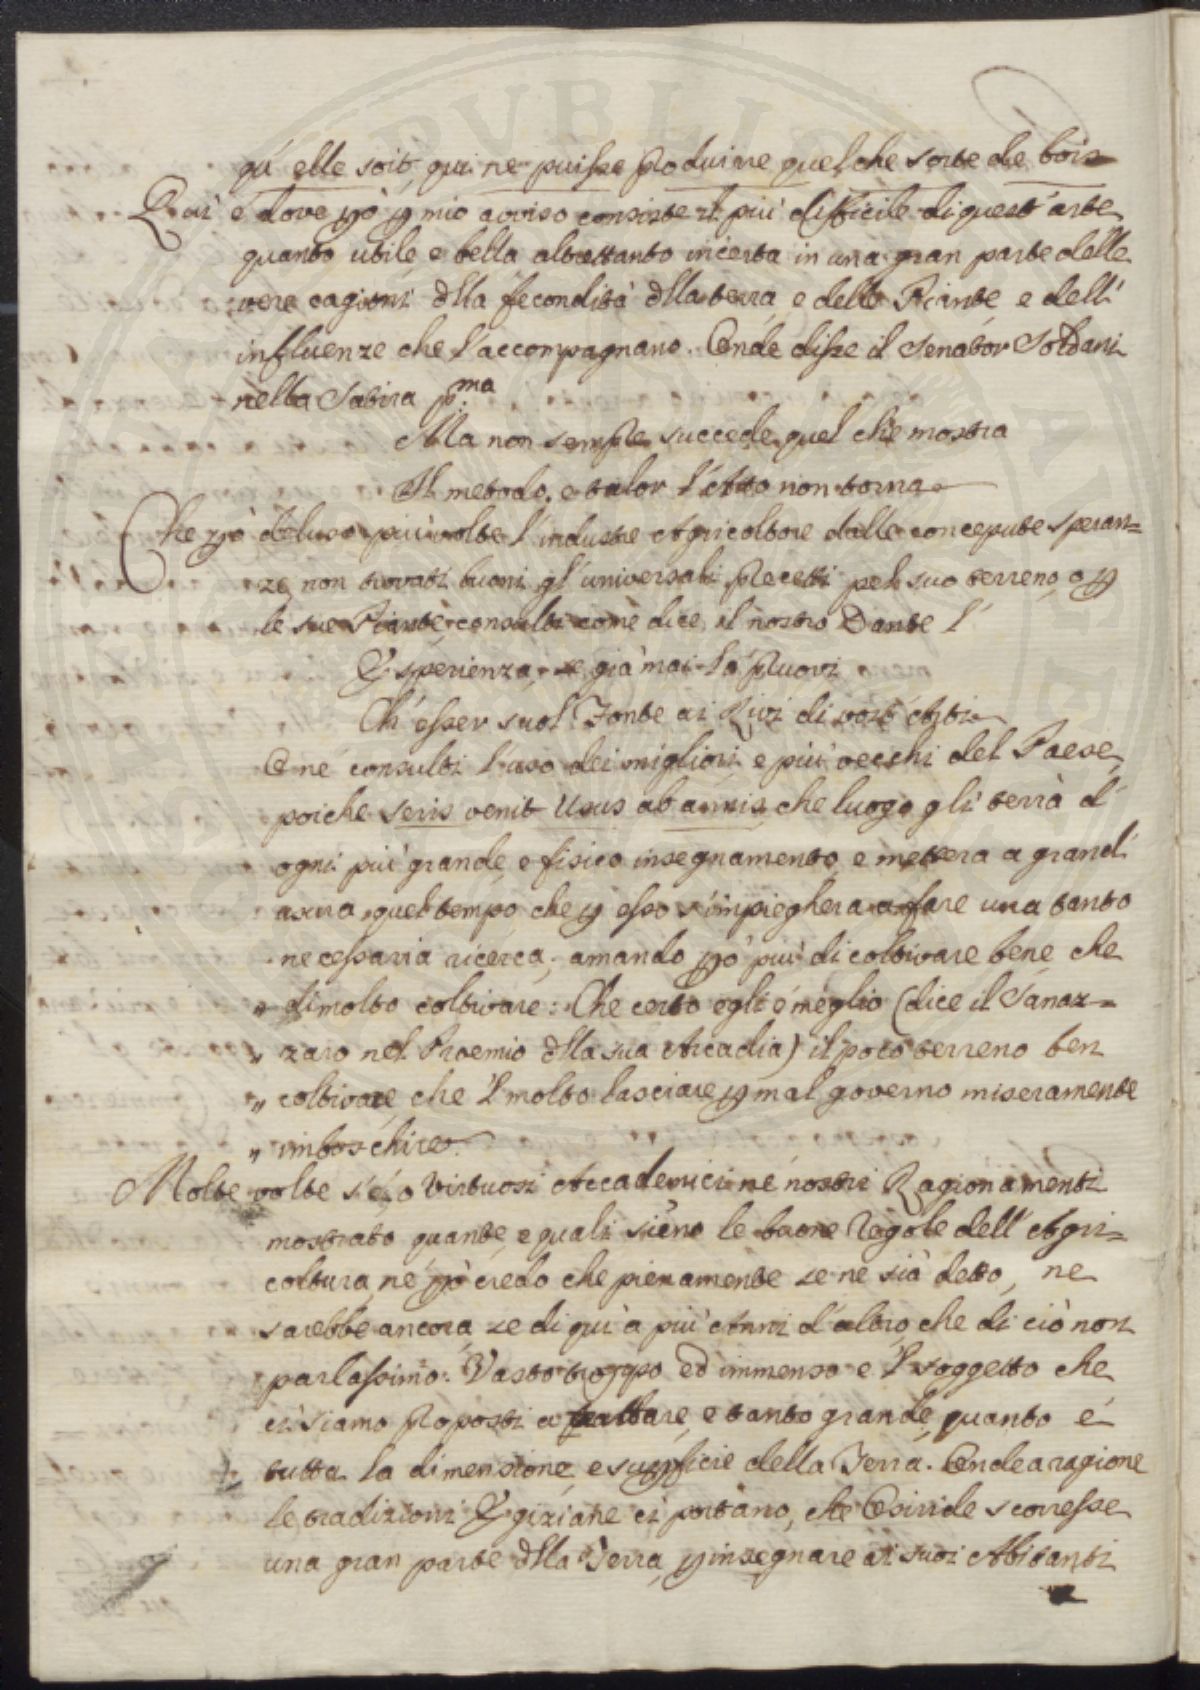 qu' elle soit, qui ne puisse produire quelche sorte de bois
Qui è dove però per mio avviso consiste il più difficile di quest' arte
quanto utile, e bella altrettanto incerta in una gran parte delle
vere cagioni della fecondità della terra, e delle Piante, e dell'
influenze che l'accompagnano. Onde disse il Senator Soldani
nella Satira p.ma
Ma non sempre succede quel che mostra
Il metodo, e talor l'Atto non torna
Che però deluso più volte l'industre Agricoltore dalle concepute speran=
ze, non trovati buoni gl' universali Precetti pel suo terreno, o per
le sue Piante, consulti come dice il nostro Dante l'
Esperienza, se già mai la pruovi
Ch' esser suol Fonte ai Rivi di vostr' Arti
e ne consulti l'uso dei migliori e più vecchi del Paese,
poiche seris venit Usus ab annis, che luogo gli terrà d'
ogni più grande, e fisico insegnamento, e metterà a grand'
usura quel tempo che per esso s'impiegherà a fare una tanto
necessaria ricerca, amando però più di coltivare bene che
" dimolto coltivare: Che certo egli è meglio (dice il Sanaz=
" zaro nel Proemio della sua Arcadia) il poco terreno ben
" coltivare che 'l molto lasciare per mal governo miseramente
" imboschire.
Molte volte s'è, o Virtuosi Accademici ne' nostri Ragionamenti
mostrato quante, e quali sieno le buone regole dell' Agri=
coltura, nè però credo che pienamente se ne sia detto, ne
sarebbe ancora, se di qui a più Anni d'altro che di ciò non
parlassimo. Vasto troppo ed immenso è 'l soggetto che
ci siamo proposti a trattare, e tanto grande, quanto è
tutta la dimensione, e superficie della Terra. Onde a ragione
le tradizioni Egiziane ci portano, che Osiride scorresse
una gran parte della Terra, per insegnare ai suoi Abitanti